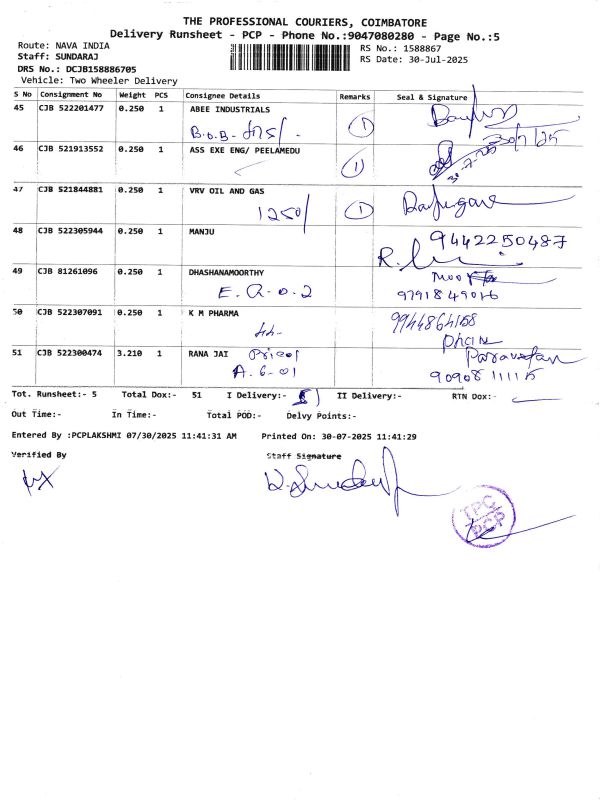 THE PROFESSIONAL COURIERS, COIMBATORE
Delivery Runsheet - PCP - Phone No.:9047080280 - Page No.:5
Route: NAVA INDIA
Staff: SUNDARAJ
DRS No.: DCJB158886705
Vehicle: Two Wheeler Delivery
RS No.: 1588867
RS Date: 30-Jul-2025
S No Consignment No Weight PCS Consignee Details Remarks Seal & Signature
45 CJB 522201477 0.250 1 ABEE INDUSTRIALS
B.O.B- 1
30/7/25
46 CJB 521913552 0.250 1 ASS EXE ENG/ PEELAMEDU
1
47 CJB 521844881 0.250 1 VRV OIL AND GAS
1250/ 1
48 CJB 522305944 0.250 1 MANJU 9442250487
49 CJB 81261096 0.250 1 DHASHANAMOORTHY
E.Q.0.2 9791849016
50 CJB 522307091 0.250 1 K M PHARMA 9944864168
51 CJB 522300474 3.210 1 RANA JAI Pricol
A.6-01 90908 11115
Tot. Runsheet:- 5 Total Dox:- 51 I Delivery:- II Delivery:- RTN Dox:-
Out Time:- In Time:- Total POD:- Delvy Points:-
Entered By :PCPLAKSHMI 07/30/2025 11:41:31 AM Printed On: 30-07-2025 11:41:29
Verified By Staff Signature
TPC
PCP